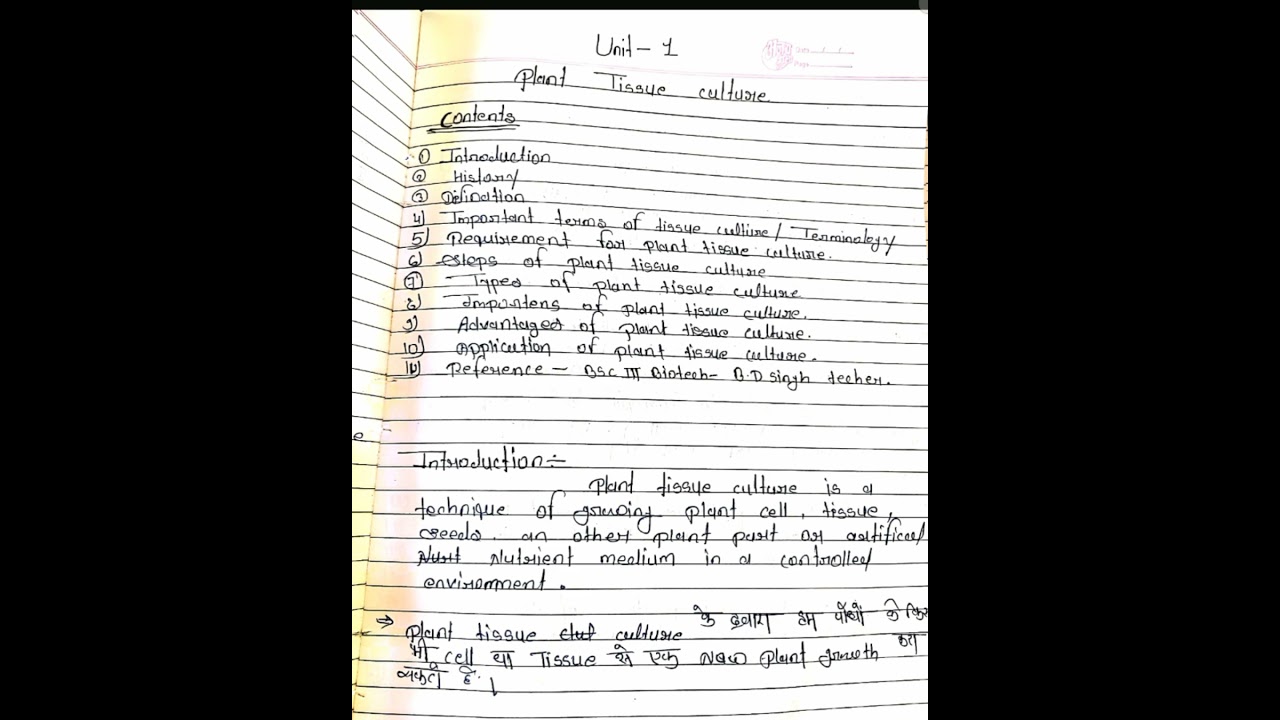 Unit - 1
Plant Tissue culture
Contents
① Introduction
② History
③ Defination
4) Important terms of tissue culture / Terminology
5) Requirement for plant tissue culture.
6) Steps of plant tissue culture
⑦ Types of plant tissue culture
8) Importens of plant tissue culture.
9) Advantages of plant tissue culture.
10) Application of plant tissue culture.
11) Reference - BSC III Biotech - B.D singh techer.
Introduction :-
Plant tissue culture is a
technique of growing plant cell, tissue,
seeds an other plant part or artifical
Nutrient medium in a controlled
environment.
⇒ Plant tissue culture के द्वारा हम पौधों के किस
भी cell या Tissue से एक New plant growth करा
सकते है।